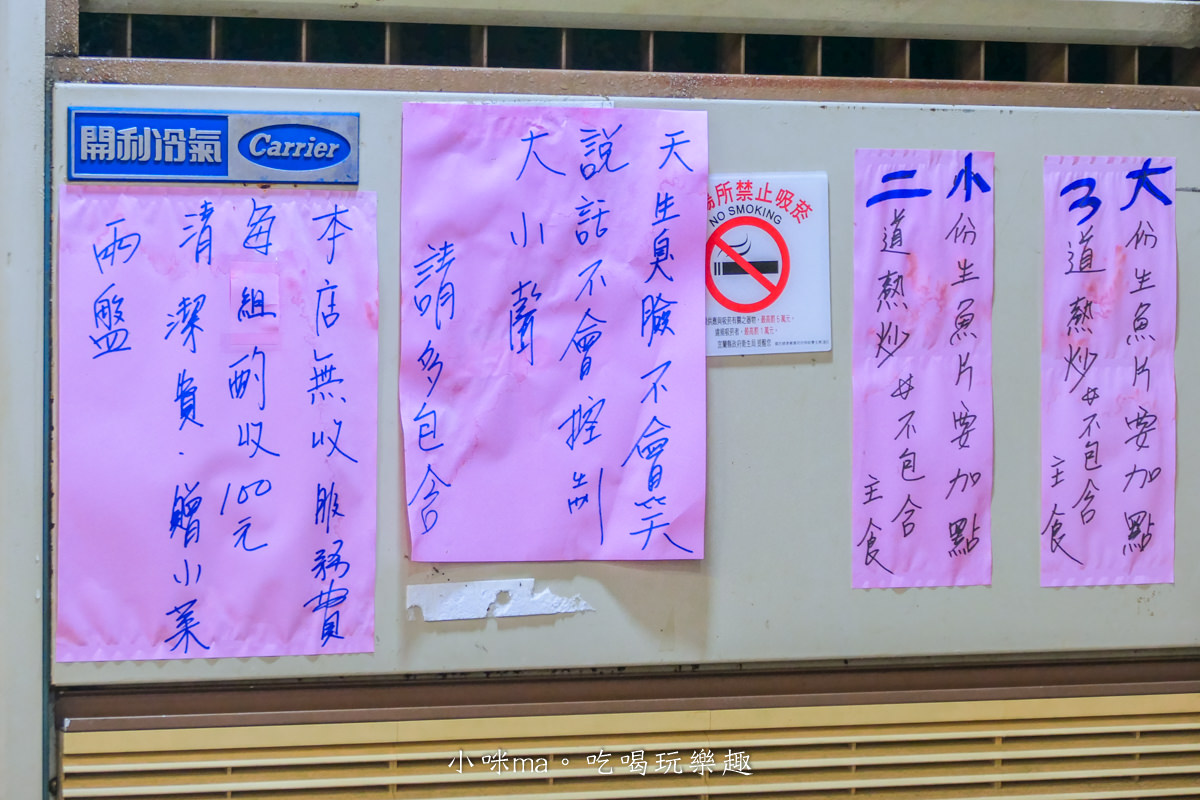 開利冷氣 Carrier
本店無收服務費
每組酌收100元
清潔費.贈小菜
兩盤
天生臭臉不會笑
說話不會控制
大小聲
請多包含
場所禁止吸菸
NO SMOKING
小份生魚片要加點
二道熱炒#不包含
主食
大份生魚片要加點
3道熱炒#不包含
主食
小咪ma。吃喝玩樂趣